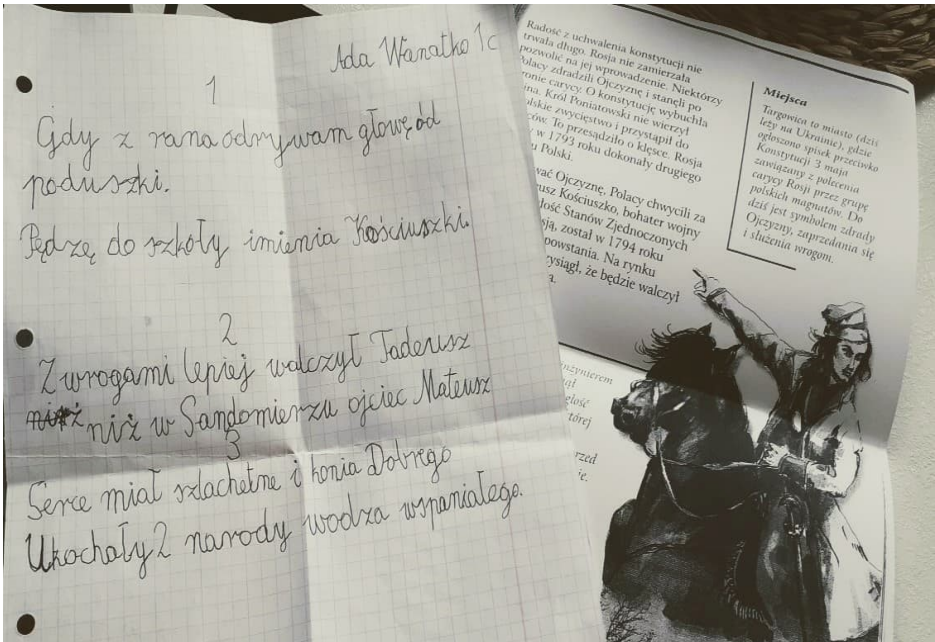 Ada Wanatko 1c
1
Gdy z rana odrywam głowę od
poduszki.
Pędzę do szkoły imienia Kościuszki.
2
Z wrogami lepiej walczył Tadeusz
niż w Sandomierzu ojciec Mateusz
3
Serce miał szlachetne i konia Dobrego
Ukochały 2 narody wodza wspaniałego.
Radość z uchwalenia konstytucji nie
trwała długo. Rosja nie zamierzała
pozwolić na jej wprowadzenie. Niektórzy
Polacy zdradzili Ojczyznę i stanęli po
ronie carycy. O konstytucję wybuchła
na. Król Poniatowski nie wierzył
olskie zwycięstwo i przystąpił do
ców. To przesądziło o klęsce. Rosja
y w 1793 roku dokonały drugiego
u Polski.
wać Ojczyznę, Polacy chwycili za
usz Kościuszko, bohater wojny
łość Stanów Zjednoczonych
ją, został w 1794 roku
powstania. Na rynku
ysiągł, że będzie walczył
a.
Miejsca
Targowica to miasto (dziś
leży na Ukrainie), gdzie
ogłoszono spisek przeciwko
Konstytucji 3 maja
zawiązany z polecenia
carycy Rosji przez grupę
polskich magnatów. Do
dziś jest symbolem zdrady
Ojczyzny, zaprzedania się
i służenia wrogom.
nżynierem
ął
głość
tórej
rzed
ie.